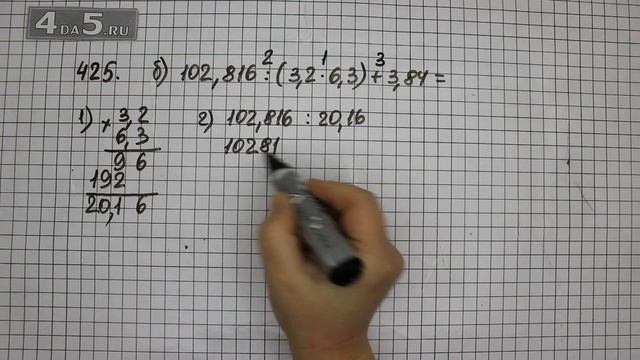 4DA5.RU
2 1 3
425. б) 102,816 : (3,2 · 6,3) + 3,84 =
1) × 3,2
6,3
9 6
192
20,1 6
2) 102,816 : 20,16
10281